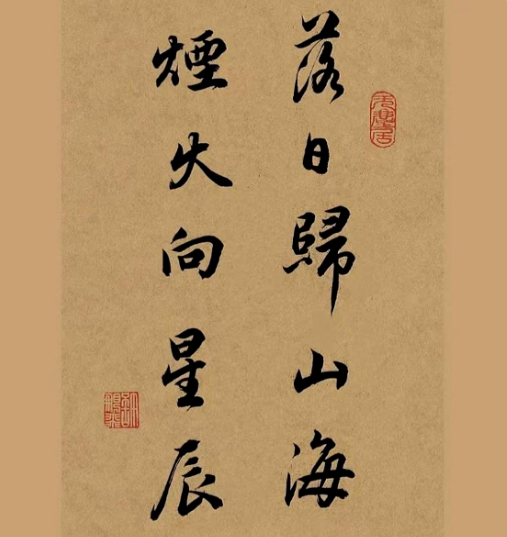 落日歸山海
煙火向星辰